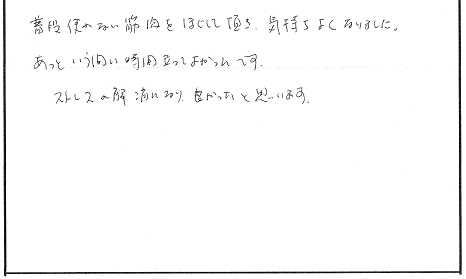 普段使わない筋肉をほぐして頂き、気持ちよくなりました。
あっという間い時間立ってよかったです。
ストレスの解消になり、良かったと思います。